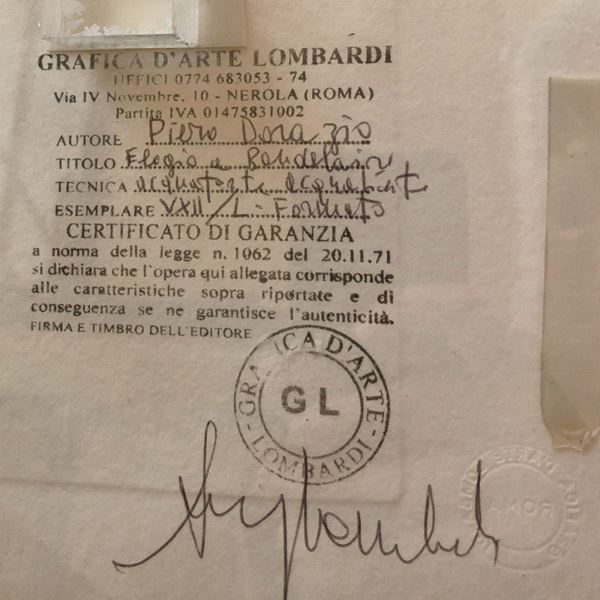 GRAFICA D'ARTE LOMBARDI
UFFICI 0774 683053 - 74
Via IV Novembre, 10 - NEROLA (ROMA)
Partita IVA 01475831002
AUTORE Piero Dorazio
TITOLO Elogio a Baudelaire
TECNICA acquaforte acquatinta
ESEMPLARE XXII/L - Formato
CERTIFICATO DI GARANZIA
a norma della legge n. 1062 del 20.11.71
si dichiara che l'opera qui allegata corrisponde
alle caratteristiche sopra riportate e di
conseguenza se ne garantisce l'autenticità.
FIRMA E TIMBRO DELL'EDITORE
GRAFICA D'ARTE
GL
LOMBARDI
ROMA